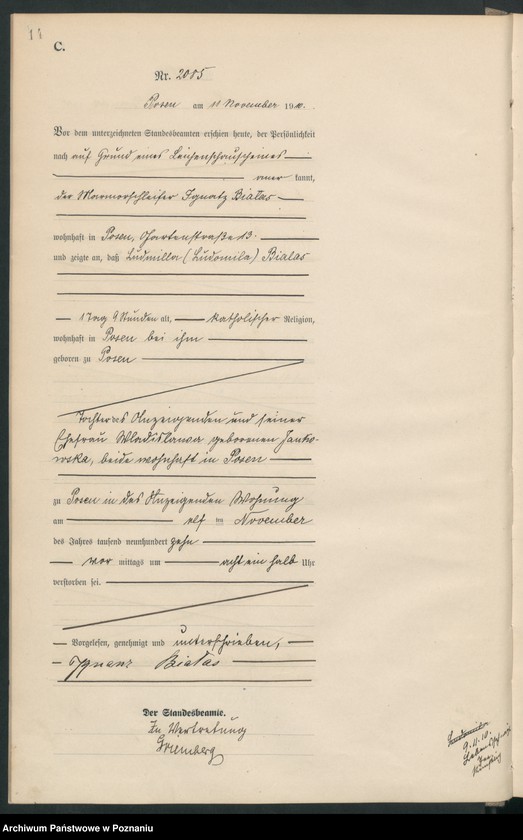 11
C.
Nr. 2085
Posen am 11 November 1910.
Vor dem unterzeichneten Standesbeamten erschien heute, der Persönlichkeit
nach auf Grund eines Leichenschauscheines
aner kannt,
der Marmorschleifer Ignatz Białas
wohnhaft in Posen, Gartenstraße 13.
und zeigte an, daß Ludmilla (Ludomila) Białas
1 Tag 9 Stunden alt, katholischer Religion,
wohnhaft in Posen bei ihm
geboren zu Posen
Tochter des Anzeigenden und seiner
Ehefrau Wladislawa geborenen Janko-
wska, beide wohnhaft in Posen
zu Posen in des Anzeigenden Wohnung
am elf ten November
des Jahres tausend neunhundert zehn
vor mittags um acht ein halb Uhr
verstorben sei.
Vorgelesen, genehmigt und unterschrieben,
Ignanz Białas
Der Standesbeamte.
In Vertretung
9.11.10.
Archiwum Państwowe w Poznaniu